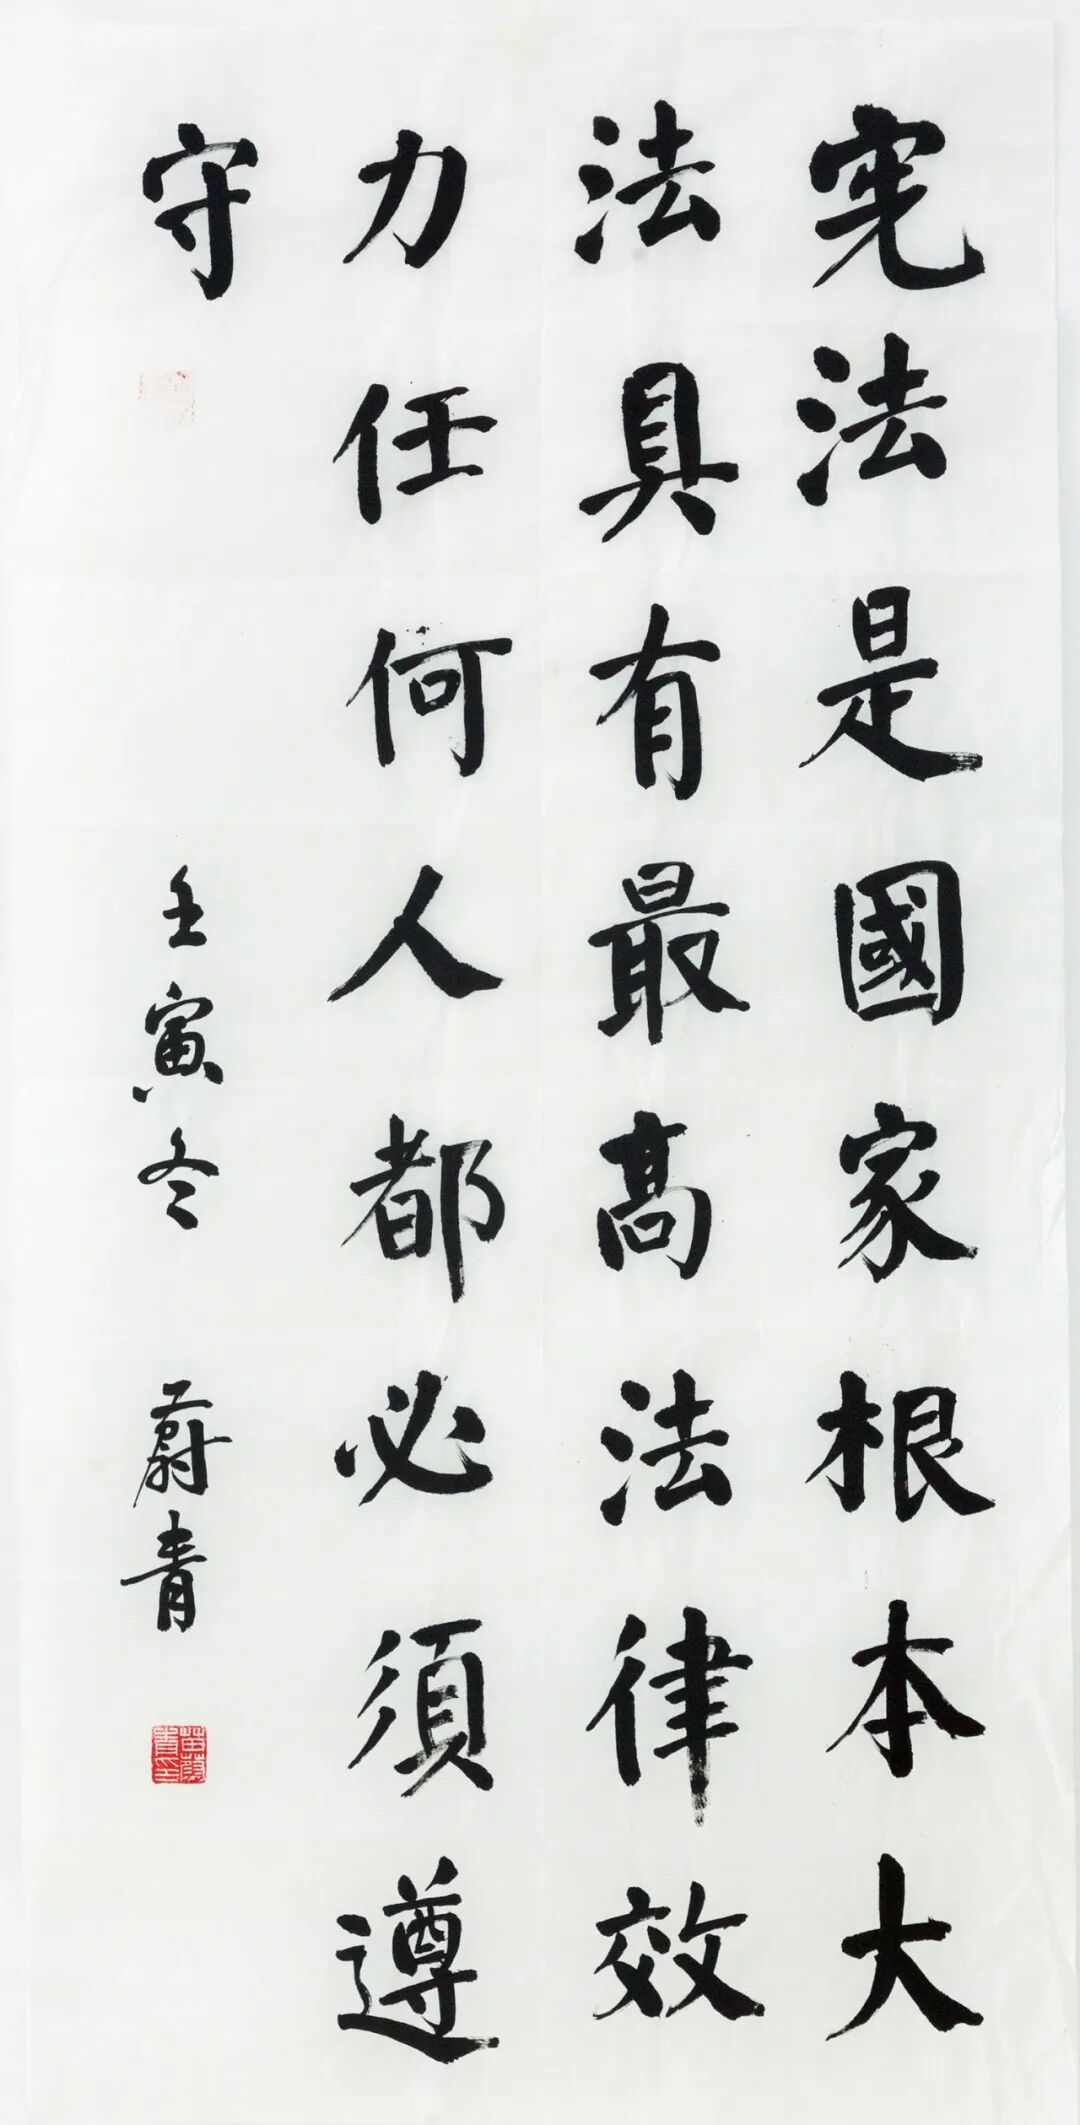 宪法是國家根本大
法具有最高法律效
力任何人都必须遵
守
壬寅冬 蔚青